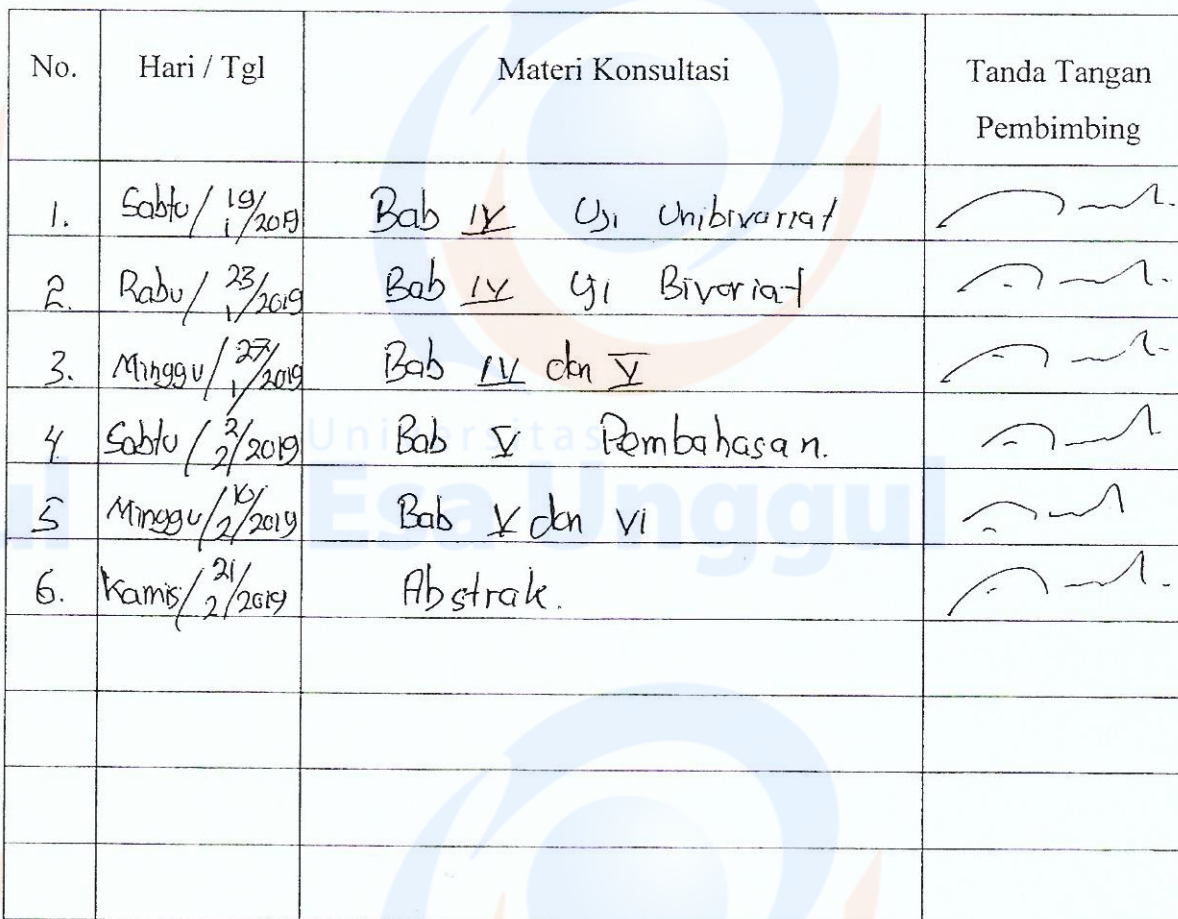 No. Hari / Tgl Materi Konsultasi Tanda Tangan
Pembimbing
1. Sabtu / 19/1/2019 Bab IV Uji Unibivariat
2. Rabu / 23/1/2019 Bab IV Uji Bivariat
3. Minggu / 27/1/2019 Bab IV dan V
4 Sabtu / 2/2/2019 Bab V Pembahasan.
5 Minggu / 10/2/2019 Bab V dan VI
6. Kamis / 21/2/2019 Abstrak.
Universitas
Esa Unggul
ul